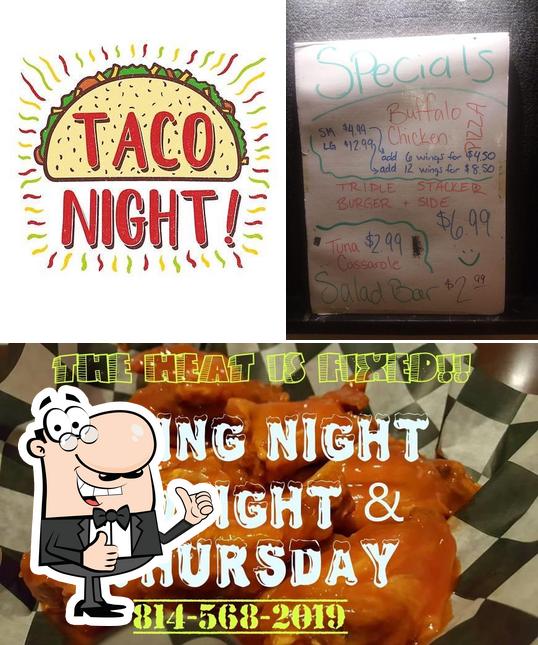 TACO
NIGHT!
Specials
Buffalo
Chicken
PIZZA
SM $4.99
LG $12.99
add 6 wings for $4.50
add 12 wings for $8.50
TRIPLE STACKER
BURGER + SIDE
$6.99
Tuna $2.99
Cassarole
Salad Bar $2.99
THE HEAT IS FIXED!!
ING NIGHT
IGHT &
HURSDAY
814-568-2019